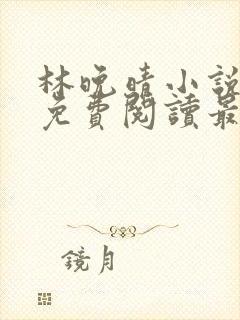 林晚晴小說
免費閱讀最
鏡月